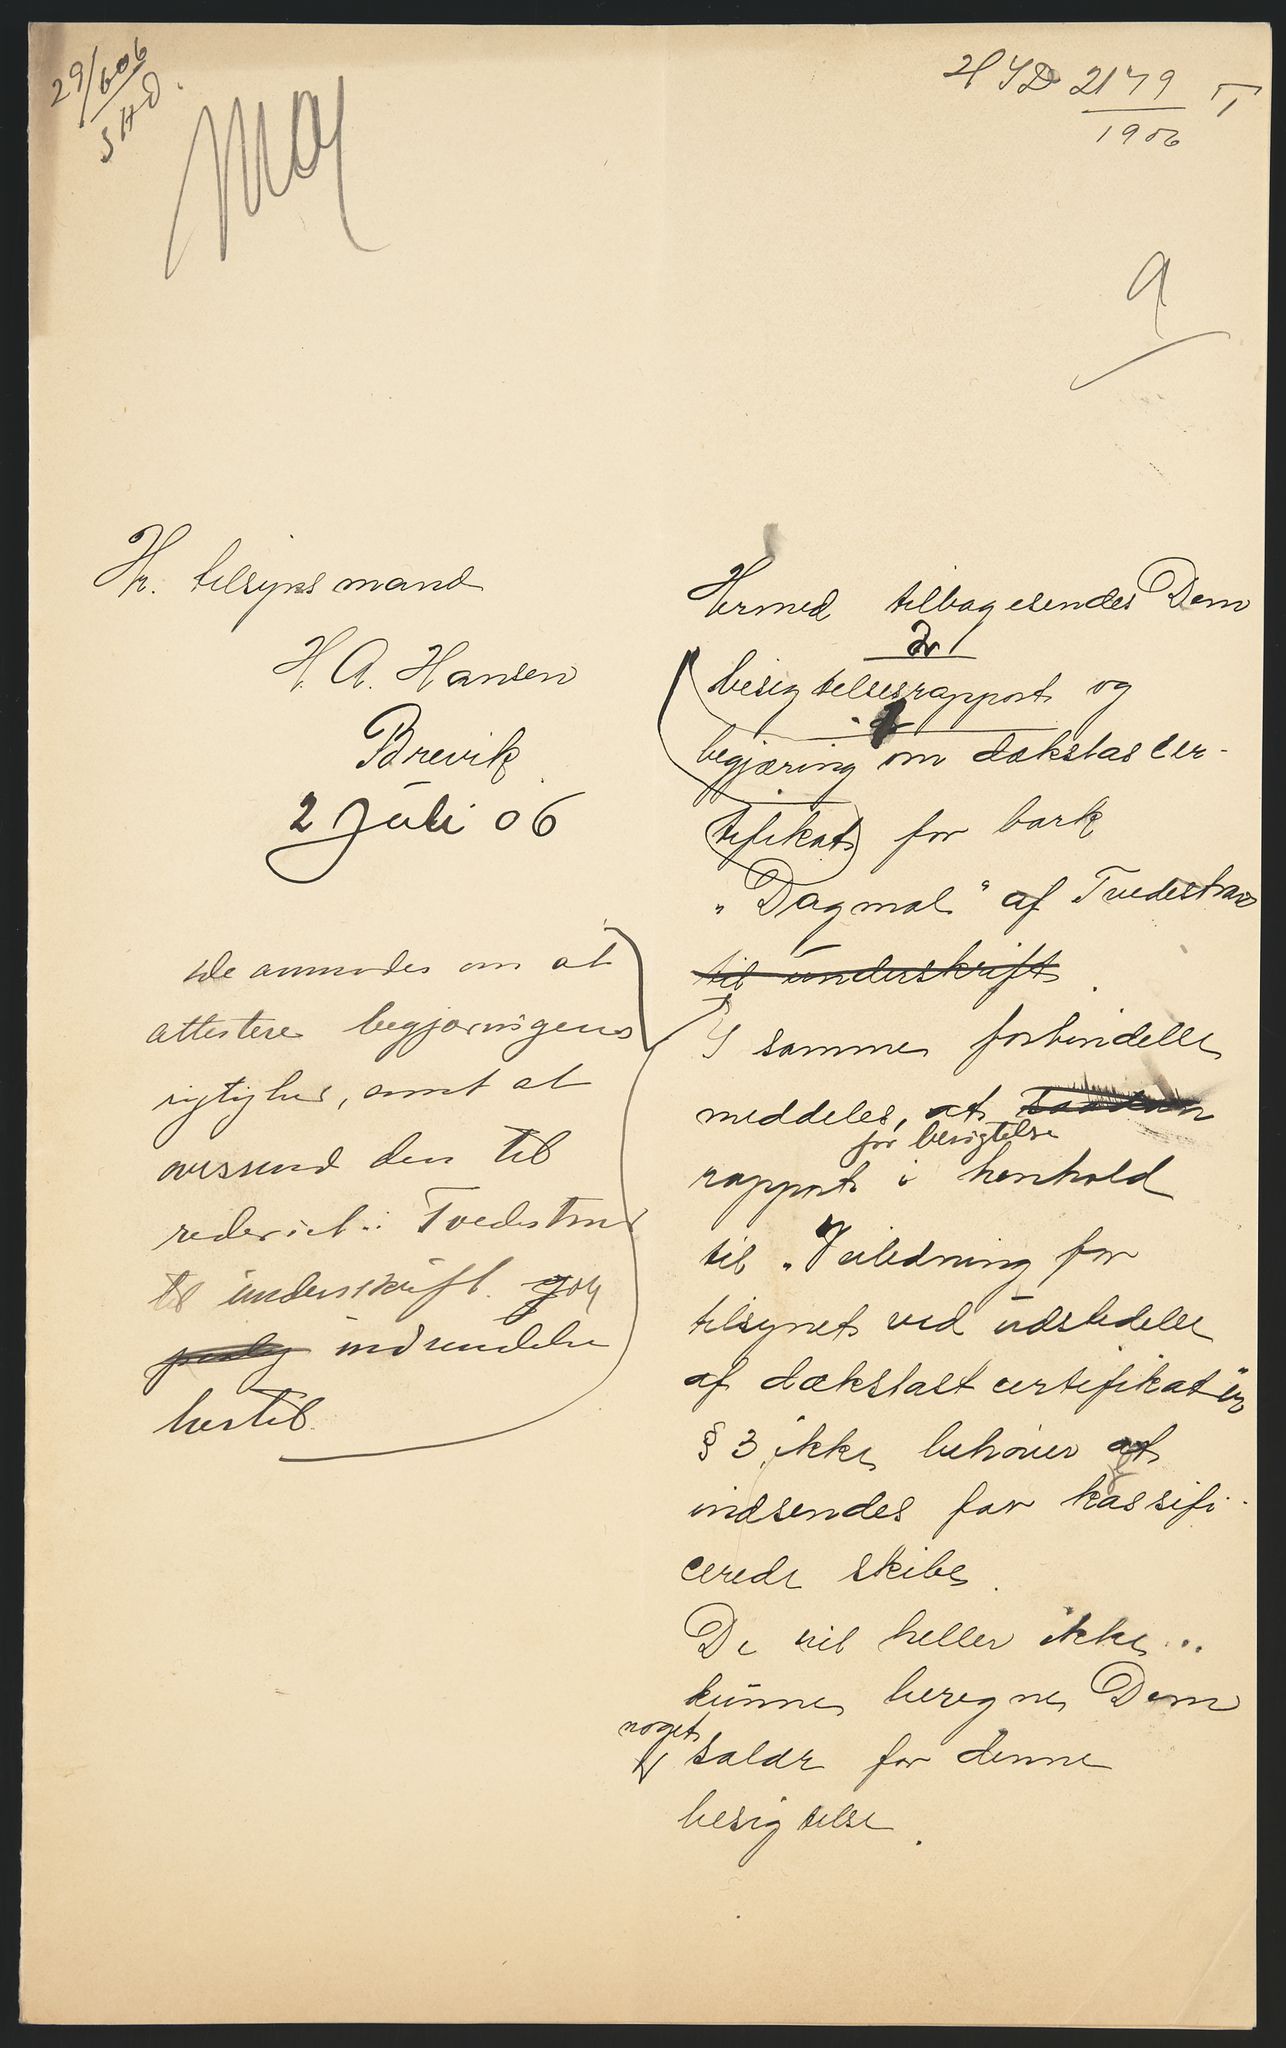 29/6 06
SHD.
HSD 2179 T
1906
Hr. tilsynsmand
H. A. Hansen
Brevik
2 Juli 06
De anmodes om at
attestere begjæringens
rigtighed, samt at
oversend den til
rederiet i Tvedestrand
til underskrift og
indsendelse
hertil.
Hermed tilbagesendes Dem
besigtelsesrapport og
begjæring om dækslastcer-
tifikat for bark
„Dagmal" af Tvedestrand
til underskrift.
I samme forbindelse
meddeles, at saadan
for besigtelse
rapport i henhold
til „Veiledning for
tilsynet ved udstedelse
af dækslastcertifikater"
§ 3 ikke behøver at
indsendes for klassifi-
cerede skibe.
De vil heller ikke
kunne beregne Dem
noget
salær for denne
besigtelse.